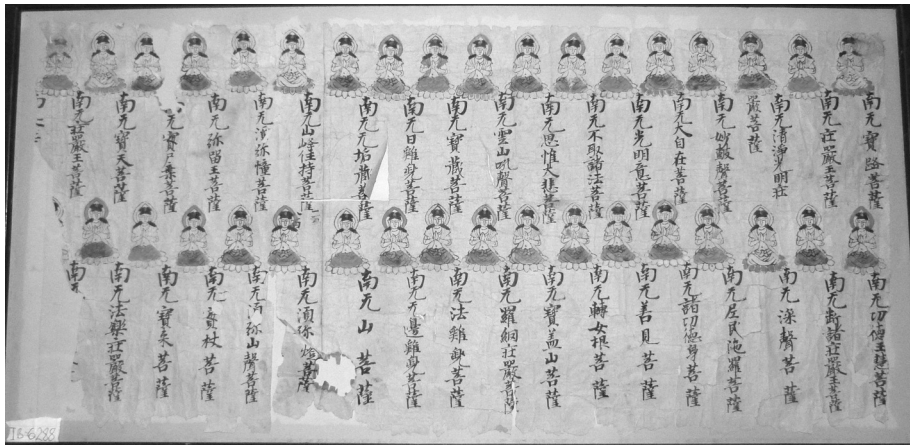 南无寶路菩薩
南无莊嚴王菩薩
南无清淨明莊
嚴菩薩
南无妙皷聲菩薩
南无大自在菩薩
南无光明意菩薩
南无不取諸法菩薩
南无思惟大悲菩薩
南无雲山吼聲菩薩
南无寶藏菩薩
南无日雞身菩薩
南无无垢藏菩薩
南无山峰住持菩薩
南无須弥幢菩薩
南无弥留王菩薩
无寶尸棄菩薩
南无寶天菩薩
南无莊嚴王菩薩
南无功德王慧菩薩
南无斷諸莊嚴王菩薩
南无深聲菩薩
南无尼民陁羅菩薩
南无諸功德身菩薩
南无善見菩薩
南无轉女根菩薩
南无寶盖山菩薩
南无羅網莊嚴菩薩
南无法雞身菩薩
南无无邊雞身菩薩
南无山菩薩
南无須弥燈菩薩
南无弥山聲菩薩
南无寶杖菩薩
南无寶來菩薩
南无法樂莊嚴菩薩
南无
ІБ-6288